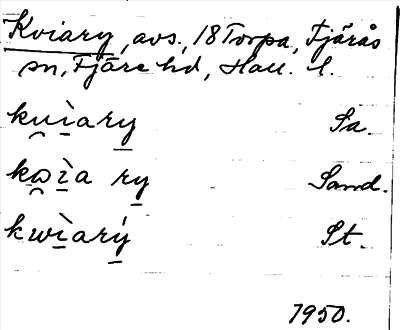 Kviary, avs., 18 Torpa, Fjärås
sn, Fjäre hd, Hall. l.
kv̯ìary Sa.
kω̯ìa ry Sand.
kwìarý St.
1950.